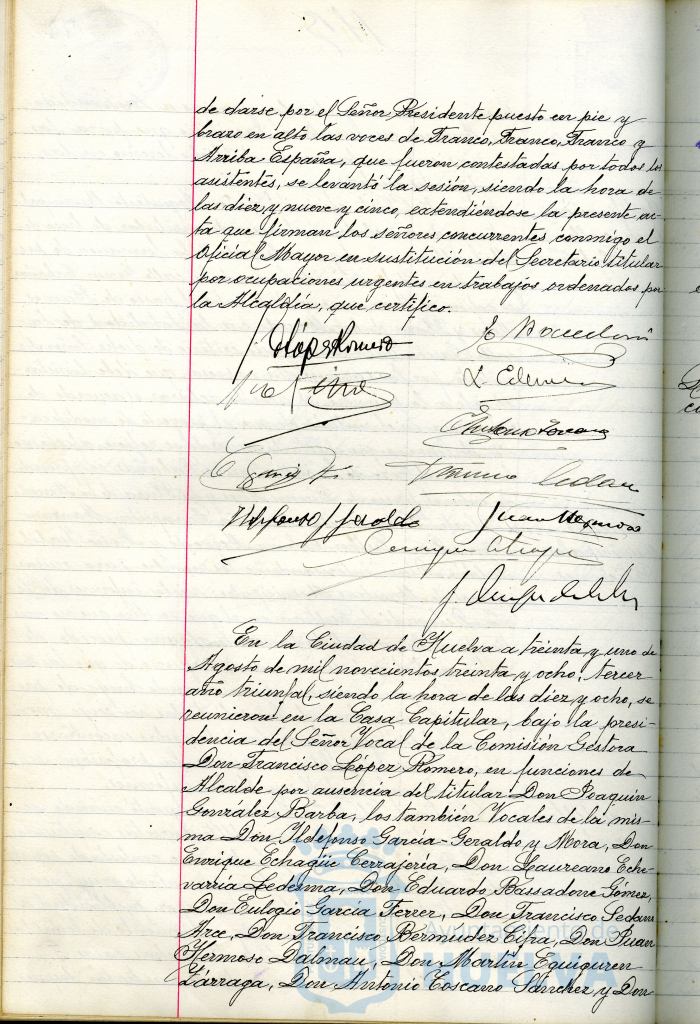 de darse por el Señor Presidente puesto en pie y
brazo en alto las voces de Franco, Franco, Franco y
Arriba España, que fueron contestadas por todos los
asistentes, se levantó la sesión, siendo la hora de
las diez y nueve y cinco, extendiéndose la presente ac-
ta que firman los señores concurrentes conmigo el
Oficial Mayor en sustitución del Secretario titular
por ocupaciones urgentes en trabajos ordenados por
la Alcaldía, que certifico.
López Romero
Ildefonso Geraldo
Juan Hermoso
En la Ciudad de Huelva a treinta y uno de
Agosto de mil novecientos treinta y ocho, tercer
año triunfal, siendo la hora de las diez y ocho, se
reunieron en la Casa Capitular, bajo la presi-
dencia del Señor Vocal de la Comisión Gestora
Don Francisco López Romero, en funciones de
Alcalde por ausencia del titular Don Joaquín
González Barba, los también Vocales de la mis-
ma Don Ildefonso García-Geraldo y Mora, Don
Enrique Echagüe Cerrajería, Don Laureano Eche-
varría Ledesma, Don Eduardo Bassadone Gómez,
Don Eulogio García Ferrer, Don Francisco Sedano
Arce, Don Francisco Bermudez Cifra, Don Juan
Hermoso Dalmau, Don Martín Eguiguren
Zárraga, Don Antonio Toscano Sánchez y Don
Ayuntamiento de
HUELVA